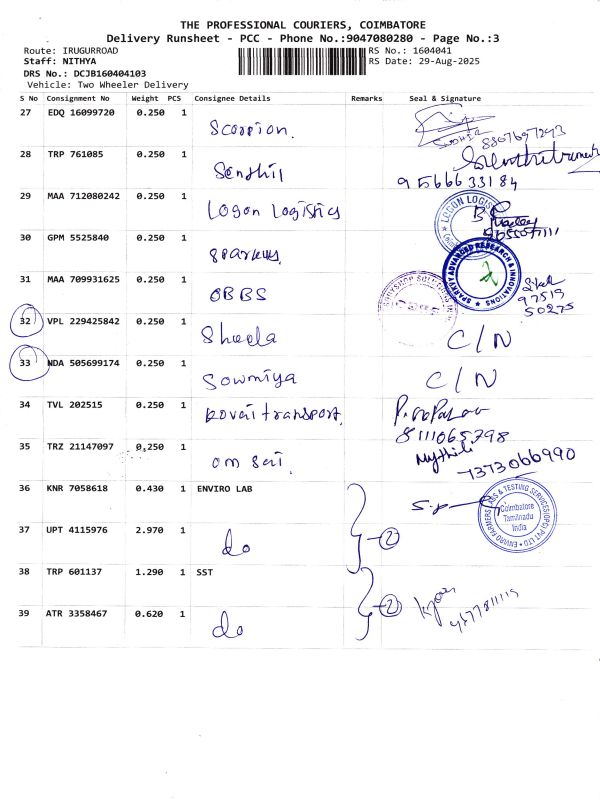 THE PROFESSIONAL COURIERS, COIMBATORE
Delivery Runsheet - PCC - Phone No.:9047080280 - Page No.:3
Route: IRUGURROAD
RS No.: 1604041
Staff: NITHYA
RS Date: 29-Aug-2025
DRS No.: DCJB160404103
Vehicle: Two Wheeler Delivery
S No Consignment No Weight PCS Consignee Details Remarks Seal & Signature
27 EDQ 16099720 0.250 1 Scorpion.
SUDHIR 8807697293
28 TRP 761085 0.250 1 Senthil
9566633184
29 MAA 712080242 0.250 1 Logon Logistics
30 GPM 5525840 0.250 1 sparkus.
SPARKY ADVANCED RESEARCH & INNOVATIONS
31 MAA 709931625 0.250 1 OBBS
97519
50275
32 VPL 229425842 0.250 1 Sheela C/N
33 NDA 505699174 0.250 1 Sowmiya C/N
34 TVL 202515 0.250 1 kovai transport.
8111065798
35 TRZ 21147097 0.250 1 om sai.
Mythili
7373066990
36 KNR 7058618 0.430 1 ENVIRO LAB
Coimbatore
Tamilnadu
India
37 UPT 4115976 2.970 1 do 2
38 TRP 601137 1.290 1 SST
39 ATR 3358467 0.620 1 do 2